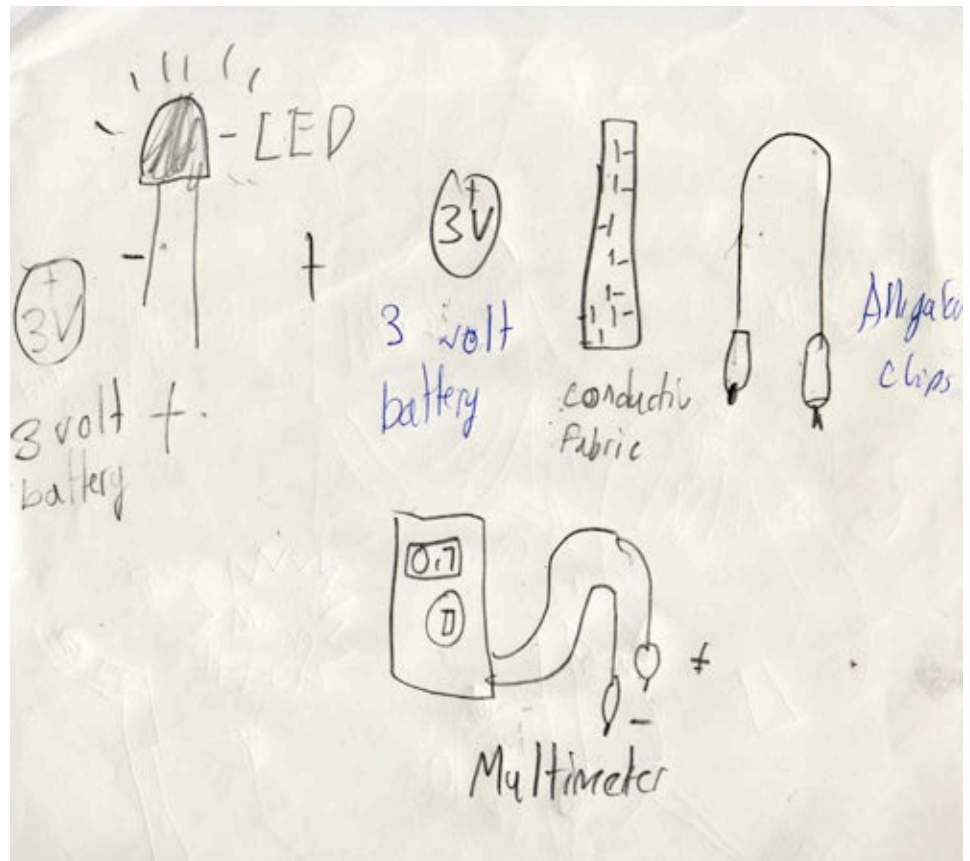 LED
-
+
+
3V
3 volt
battery
+
-
+
3V
3 volt
battery
conductiv
Fabric
Alligator
clips
0.7
D
+
-
Multimeter